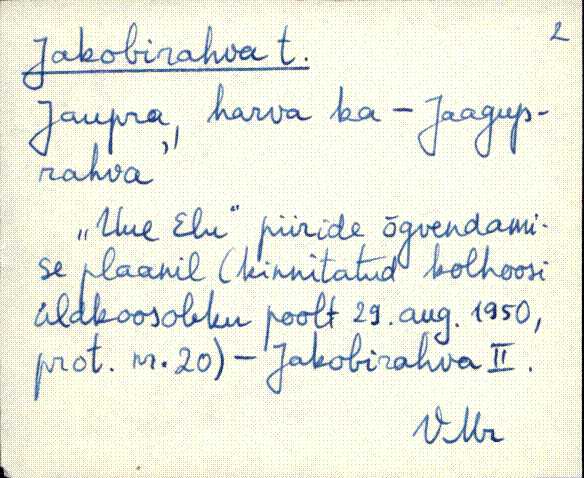 2
Jakobirahva t.
Jaupra, harva ka - Jaagup-
rahva
„Uue Elu" piiride õgvendami-
se plaanil (kinnitatud kolhoosi
üldkoosoleku poolt 29. aug. 1950,
prot. nr. 20) - Jakobirahva II.
VMr